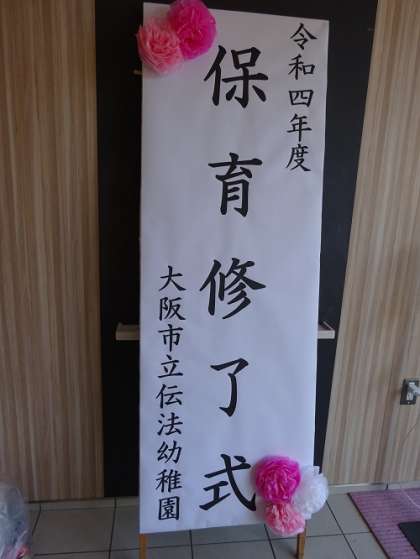 令和四年度
保育修了式
大阪市立伝法幼稚園